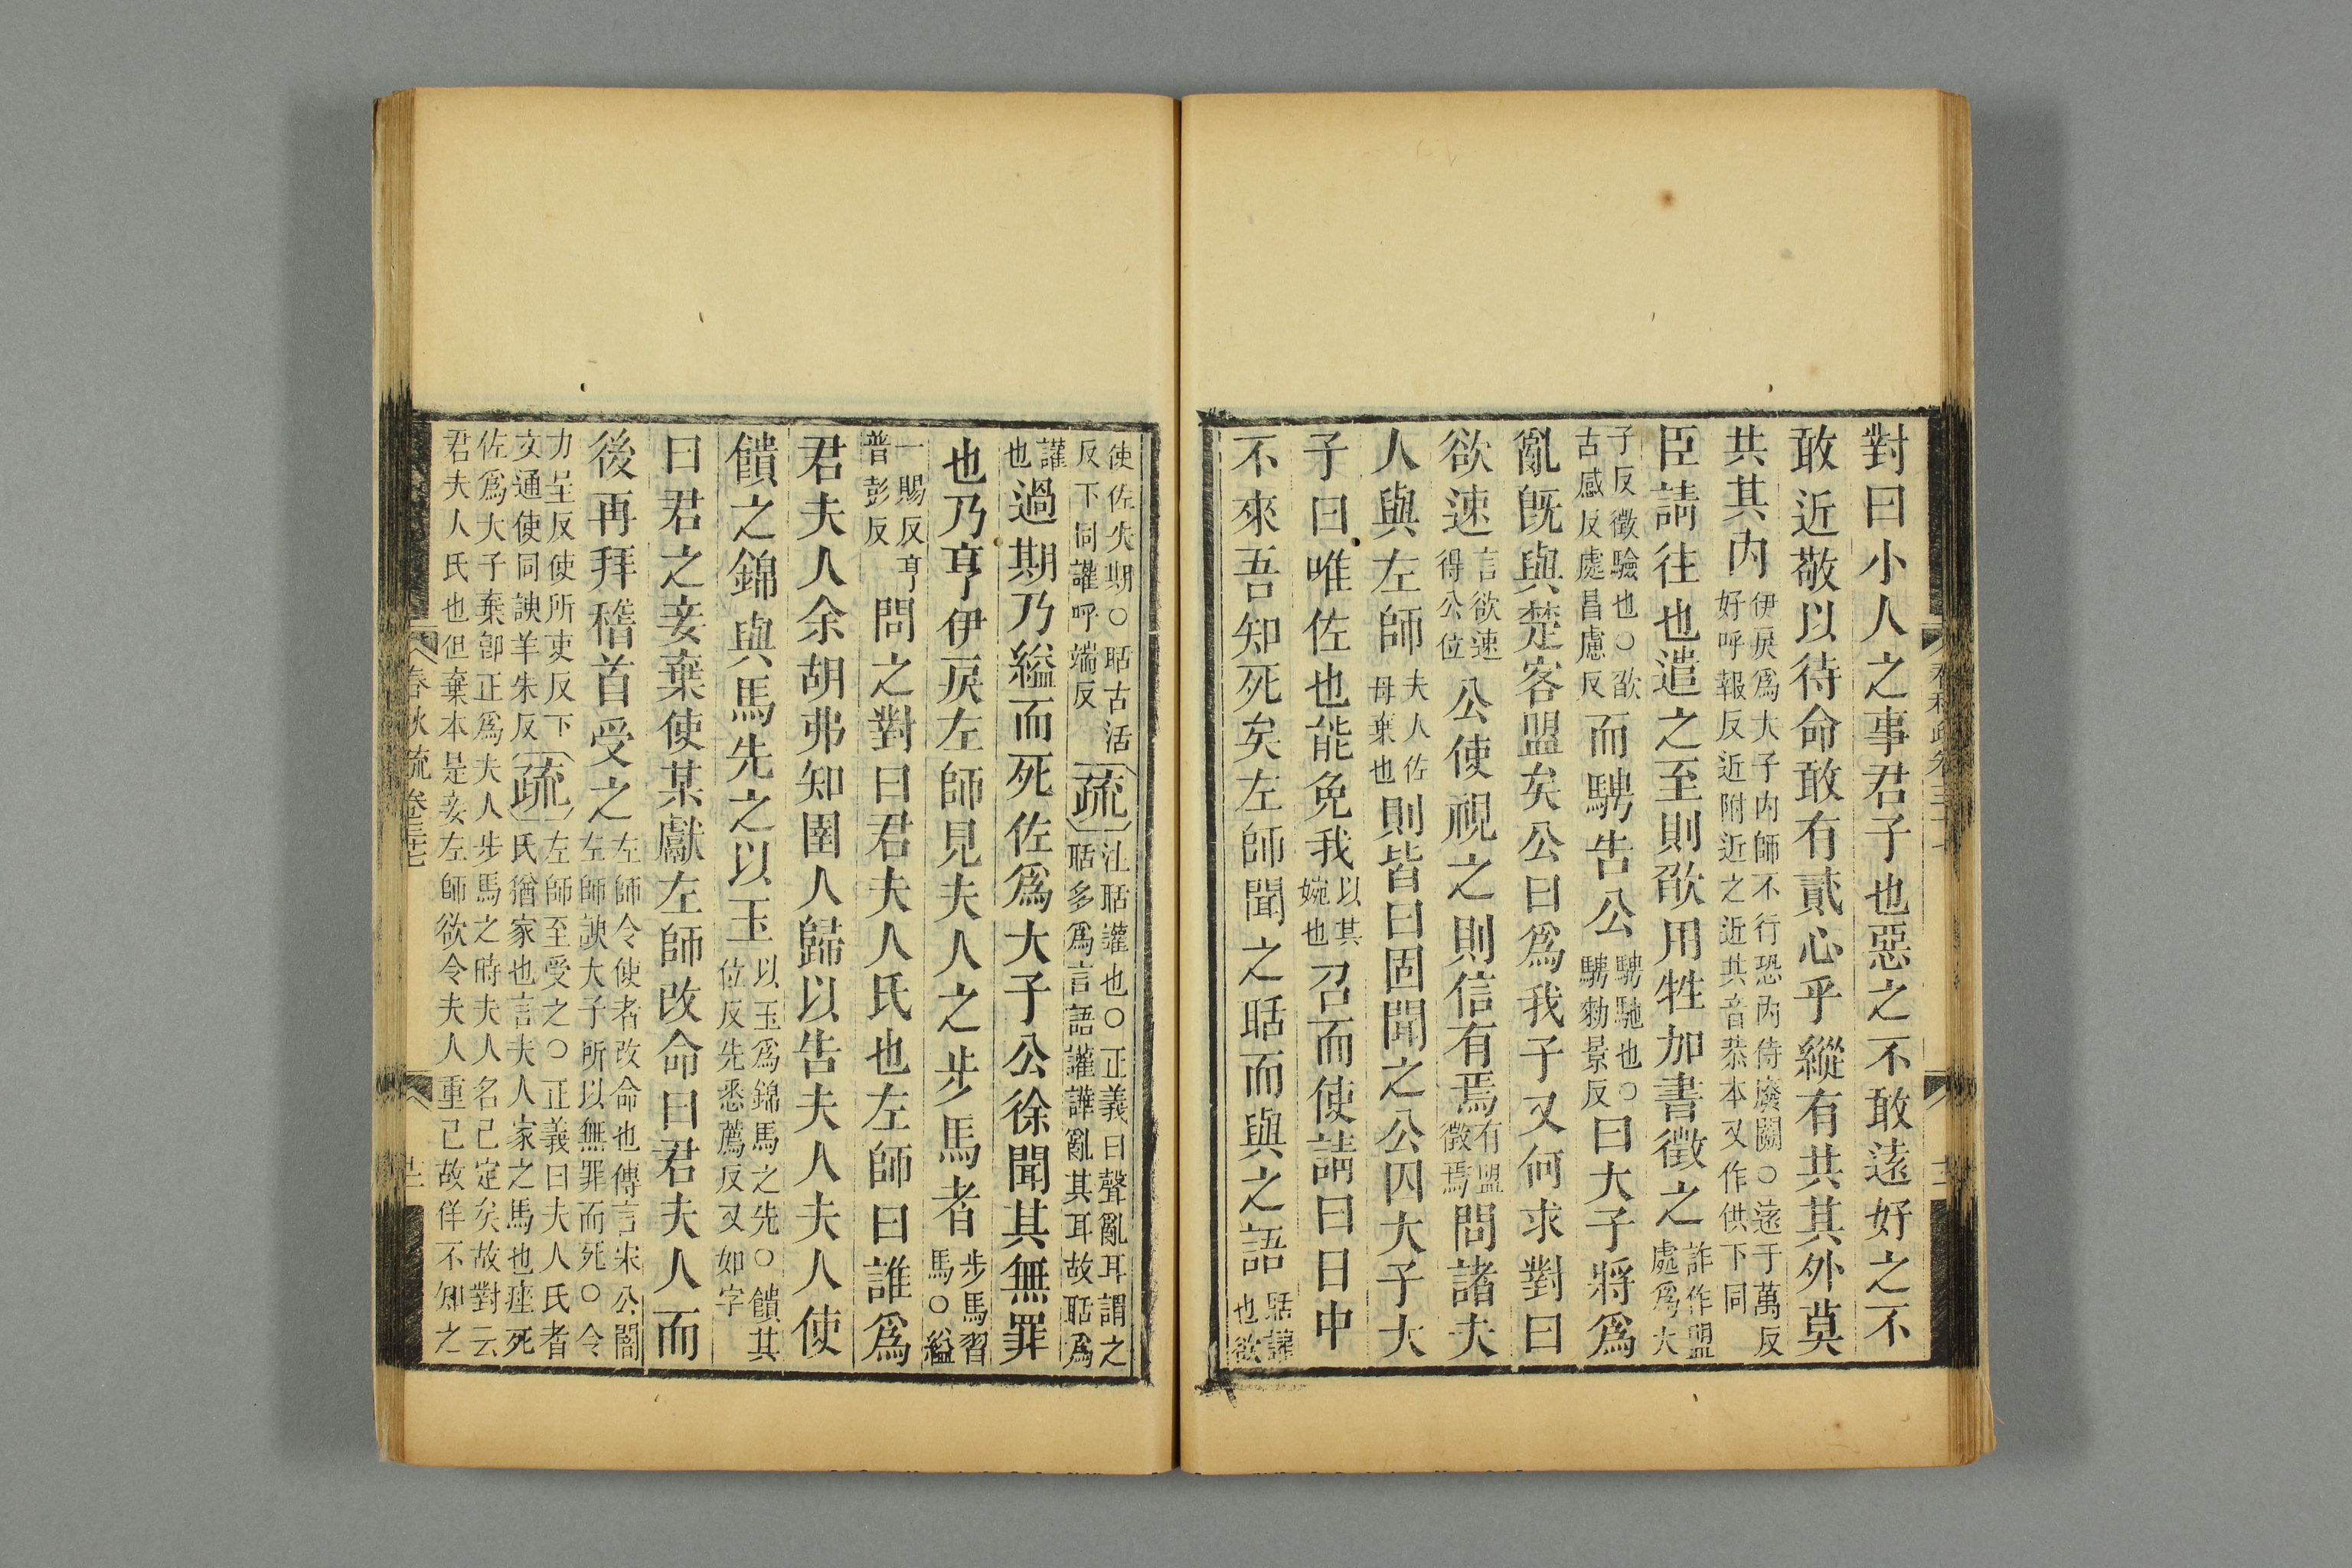 對曰小人之事君子也惡之不敢遠好之不
敢近敬以待命敢有貳心乎縱有共其外莫
共其內伊戾爲大子內師不行恐內侍廢闕○遠于萬反好呼報反近附近之近共音恭本又作供下同
臣請往也遣之至則欿用牲加書徵之詐作盟處爲大
子反徵驗也○欿古感反處昌慮反而騁告公騁馳也○騁勑景反曰大子將爲
亂旣與楚客盟矣公曰爲我子又何求對曰
欲速言欲速得公位公使視之則信有焉有盟徵焉問諸夫
人與左師夫人佐母棄也則皆曰固聞之公囚大子大
子曰唯佐也能免我以其婉也召而使請曰日中
不來吾知死矣左師聞之聒而與之語聒讙也欲
使佐失期○聒古活反下同讙呼端反疏注聒讙也○正義曰聲亂耳謂之聒多爲言語讙譁亂其耳故聒爲
讙也過期乃縊而死佐爲大子公徐聞其無罪
也乃亨伊戾左師見夫人之步馬者步馬習馬○縊
一賜反亨普彭反問之對曰君夫人氏也左師曰誰爲
君夫人余胡弗知圉人歸以告夫人夫人使
饋之錦與馬先之以玉以玉爲錦馬之先○饋其位反先悉薦反又如字
曰君之妾棄使某獻左師改命曰君夫人而
後再拜稽首受之左師令使者改命也傳言宋公闇左師諛大子所以無罪而死○令
力呈反使所吏反下文通使同諛羊朱反疏左師至受之○正義曰夫人氏者氏猶家也言夫人家之馬也痤死
佐爲大子棄卽正爲夫人步馬之時夫人名已定矣故對云君夫人氏也但棄本是妾左師欲令夫人重己故佯不知之
春秋疏卷三十七